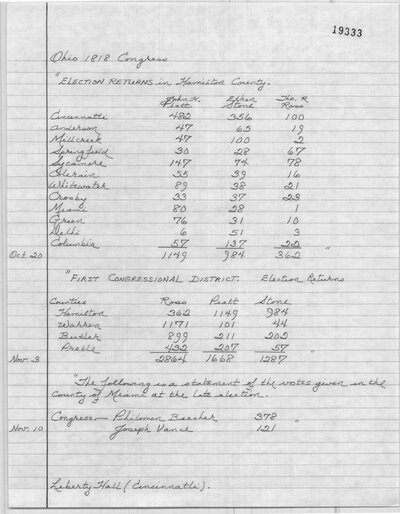 19333
Ohio 1818 Congress
"ELECTION RETURNS in Hamilton County.
John H. Piatt Ethan Stone Tho. R. Ross
Cincinnatti 482 356 100
Anderson 47 65 19
Millcreek 47 100 2
Springfield 30 28 67
Sycamore 147 74 78
Colerain 55 39 16
Whitewater 89 38 21
Crosby 33 37 23
Miami 80 28 1
Green 76 31 10
Delhi 6 51 3
Columbia 57 137 22 "
Oct. 20 1149 984 362
"FIRST CONGRESSIONAL DISTRICT. Election Returns
Counties Ross Piatt Stone
Hamilton 362 1149 984
Warren 1171 101 44
Butler 899 211 202
Preble 432 207 57 "
Nov. 3 2864 1668 1287
"The following is a statement of the votes given in the
County of Miami at the late election.
Congress— Philomen Beecher 378 "
Nov. 10 Joseph Vance 121
Liberty Hall (Cincinnatti).